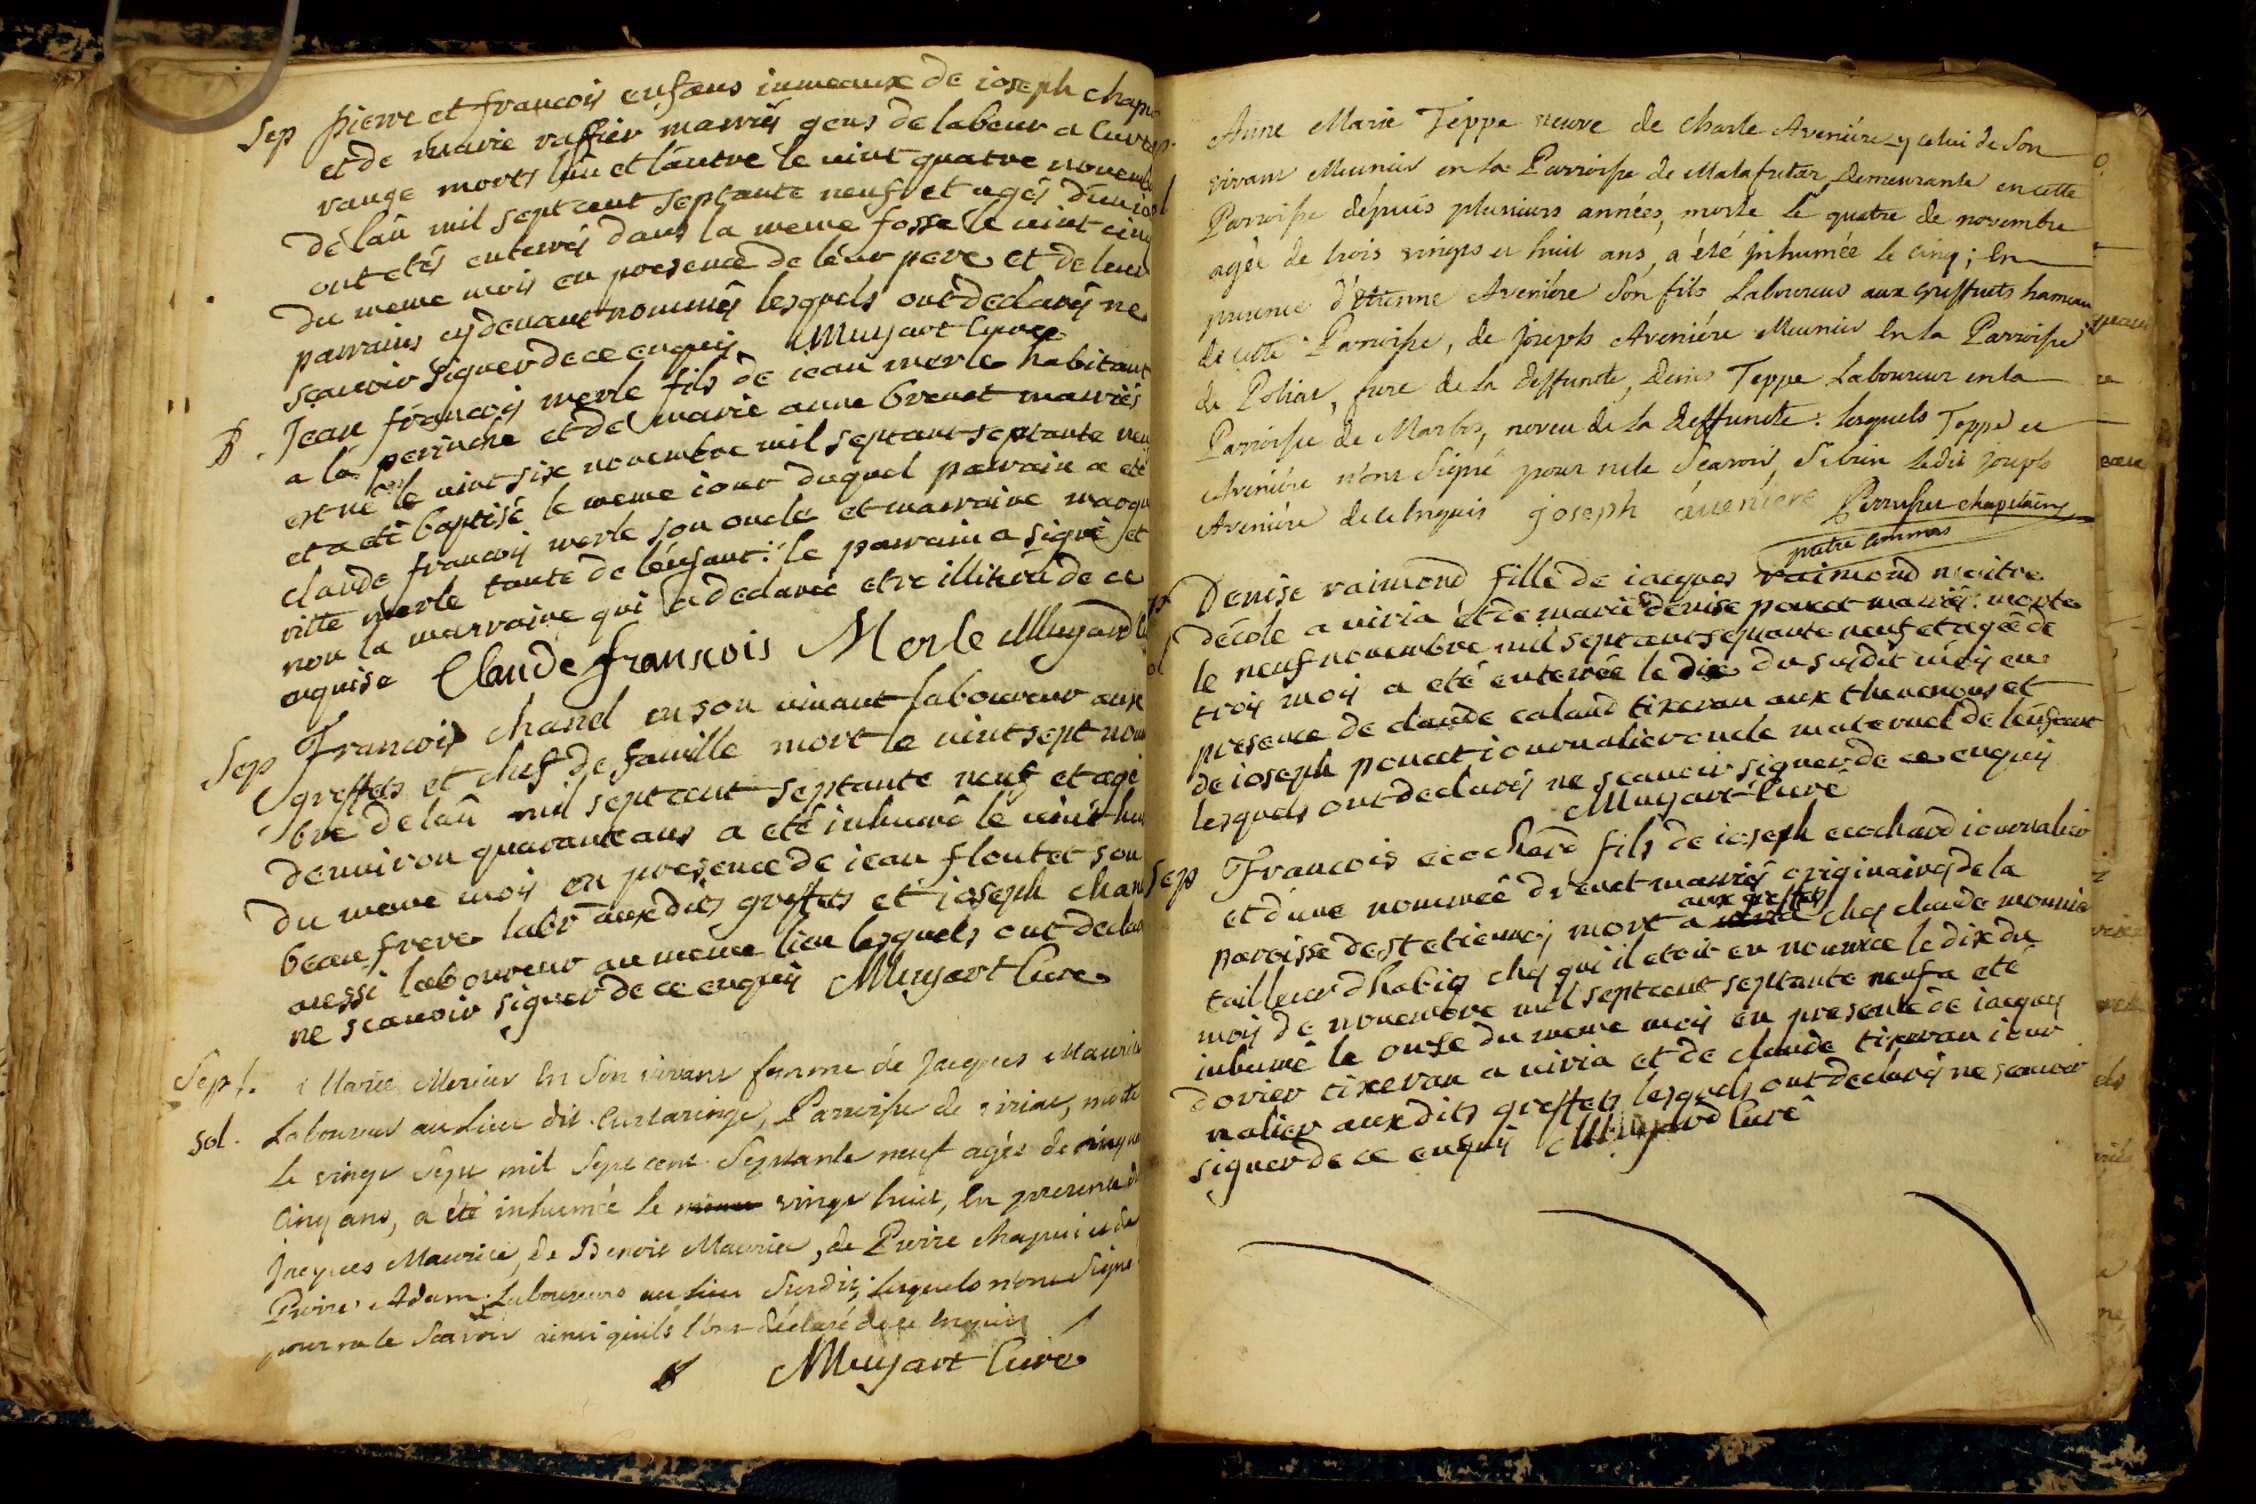 Sep pierre et francois enfans iumeaux de ioseph chap
et de marie raffier mariés gens de labeur a Curta
range morts lun et lautre le vint quatre novemb
de lañ mil sept cent septante neuf et agés dun io
ont etés enterrés dans la meme fosse le vint cinq
du meme mois en presence de leur pere et de leur
parrains cydevant nommés lesquels ont declarés ne
scavoir signer de ce enquis Muyart Curé
B. Jean francois merle fils de iean merle habitant
a la perinche et de marie anne brenet marriés
est né le vint six novembre mil sept cent septante neu
et a eté baptisé le meme iour duquel parrain a eté
claude francois merle son oncle et marraine margu
ritte merle tante de lenfant: le parrain a signé et
non la marraine qui a declaré etre illiteré de ce
enquise Claude françois Merle Muyard
Sep Francois chanel en son vivant laboureur aux
greffets et chef de famille mort le vint sept nov
bre de lañ mil sept cent septante neuf et agé
denviron quarante ans a eté inhumé le vint hu
du meme mois en presence de iean floutet son
beau frere labr auxdits greffets et ioseph chan
aussi laboureur au meme lieu lesquels ont decla
ne scavoir signer de ce enquis Muyart Curé
Sept. Marie Mercier En Son vivant femme de Jacques Maurice
sol. Laboureur au Lieu dit Curtaringe, Parroisse de viriat, morte
le vingt Sept mil Sept cent Septante neuf agée de cinqua
Cinq ans, a été inhumée le vingt huit, En presence d
Jacques Maurice, de Benoit Maurice, de Pierre chapui et de
Pierre Adam Laboureurs au Lieu Susdit; lesquels n'ont Signé
pour ne le Scavoir ainsi quils l'ont déclaré de ce Enquis
Muyart Curé
Anne Marie Teppe veuve de Charle Aveniére y celui de Son
vivant Meunier en la Parroisse de Malafretaz, Demeurante en cette
Parroisse dépuis plusieurs années, morte le quatre de novembre
agée de trois vingts et huit ans, a été inhumée le cinq; En
presence d'Etienne Aveniére Son fils Laboureur aux Greffets hameau
de cette Parroisse, de Joseph Aveniére Meunier En la Parroisse
de Poliat, frere de la deffuncte, Denis Teppe Laboureur en la
Parroisse de Marboz, neveu de la deffuncte: lesquels Teppe et
Aveniére n'ont Signé pour ne le Scavoir, Si bien Ledit Joseph
Aveniére de ce Enquis joseph áveniere
prétre commis
Denise raimond fille de iacques raimond maitre
décole a viria et de marie denise poncet mariés: morte
le neuf novembre mil sept cent septante neuf et agée de
trois mois a eté enterrée le dix du susdit mois en
presence de claude caland tixeran aux thevenons et
de ioseph poncet iournalier oncle maternel de lenfant
lesquels ont declarés ne scavoir signer de ce enquis
Muyart Curé
Sep Francois ecochard fils de ioseph ecochard iournalier
et dune nommée drevet mariés originaires de la
aux greffets
paroisse de st etienne, mort a chez claude monnie
tailleur dhabits chez qui il etoit en nourrice le dix du
mois de novembre mil sept cent septante neuf a eté
inhumé le onse du meme mois en presence de iacques
dorier tixeran a viria et de claude tixeran iour
nalier auxdits greffets lesquels ont declarés ne scavoir
signer de ce enquis Muyard Curé